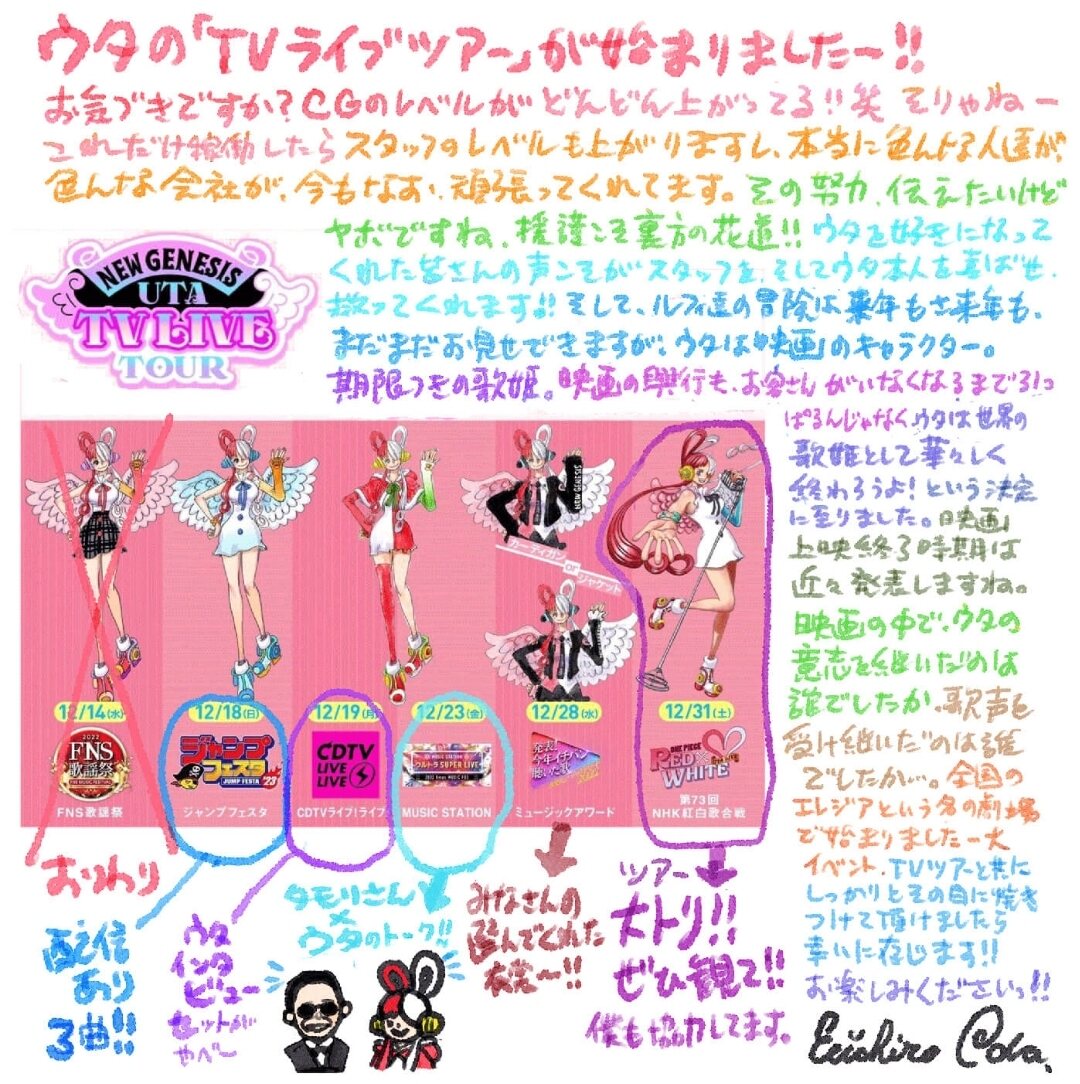 ウタの「TVライブツアー」が始まりましたー!!
お気づきですか?CGのレベルがどんどん上がってる!!笑 そりゃねー
これだけ稼働したらスタッフのレベルも上がりますし、本当に色んな人達が、
色んな会社が、今もなお、頑張ってくれてます。その努力、伝えたいけど
ヤボですね、援護こそ裏方の花道!!ウタを好きになって
くれた皆さんの声こそがスタッフを、そしてウタ本人を喜ばせ、
救ってくれます!!そして、ルフィ達の冒険は来年もさ来年も、
まだまだお見せできますが、ウタは映画のキャラクター。
期限つきの歌姫。映画の興行も、お客さんがいなくなるまで引っ
ぱるんじゃなくウタは世界の
歌姫として華々しく
終わろうよ!という決定
に至りました。映画
上映終了時期は
近々発表しますね。
映画の中で、ウタの
意志を継いだのは
誰でしたか。歌声を
受け継いだのは誰
でしたか。全国の
エレジアという名の劇場
で始まりました一大
イベント、TVツアーと共に
しっかりとその目に焼き
つけて頂けましたら
幸いに存じます!!
お楽しみくださいっ!!
Eiichiro Oda.
NEW GENESIS
UTA
TV LIVE
TOUR
NEW GENESIS
カーディガン
or
ジャケット
12/14(水)
2022
FNS
歌謡祭
FNS歌謡祭
おわり
12/18(日)
ジャンプ
フェスタ
JUMP FESTA '23
ジャンプフェスタ
配信
あり
3曲!!
12/19(月)
CDTV
LIVE
LIVE
CDTVライブ!ライブ
ウタ
インタ
ビュー
セットが
やべー
12/23(金)
ウルトラ SUPER LIVE
MUSIC STATION
タモリさん
×
ウタのトーク!!
12/28(水)
発表!
今年イチバン
聴いた歌
2022
ミュージックアワード
みなさんの
選んでくれた
衣装〜!!
12/31(土)
ONE PIECE
RED
WHITE
第73回
NHK紅白歌合戦
ツアー
大トリ!!
ぜひ観て!!
僕も協力してます。